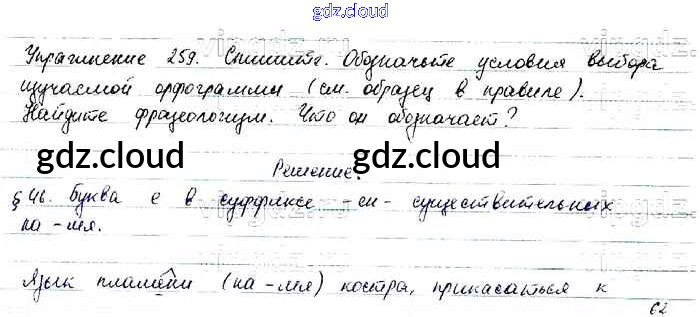 gdz.cloud
Упражнение 259. Спишите. Обозначьте условия выбора
изучаемой орфограммы (см. образец в правиле).
Найдите фразеологизм. Что он обозначает?
gdz.cloud gdz.cloud
Решение.
§ 46. Буква е в суффиксе -ен- существительных
на -мя.
Язык пламени (на -мя) костра, прикасаться к
62